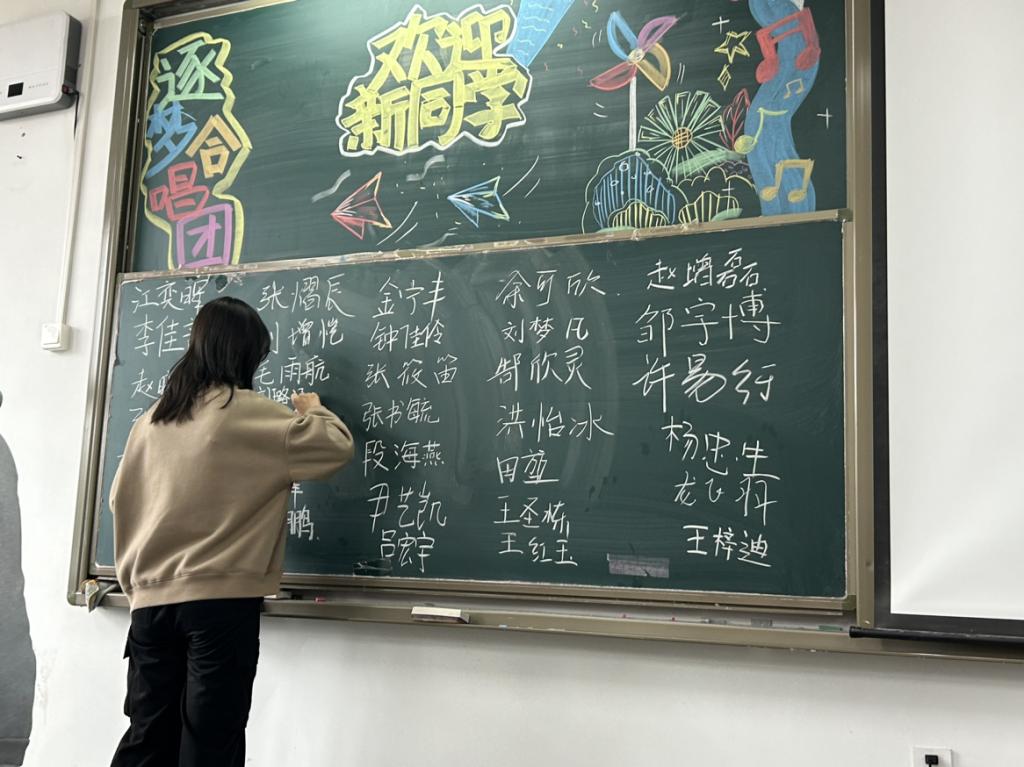 逐梦合唱团
欢迎
新同学
江奕晖
李佳
赵
张熠辰
增恺
毛雨航
鹏
金宁丰
钟佳伶
张筱笛
张书毓
段海燕
尹艺凯
吕宏宇
徐可欣
刘梦凡
郜欣灵
洪怡冰
田堃
王圣桥
王红玉
赵增磊
邹宇博
许易行
杨忠生
龙飞
王梓迪